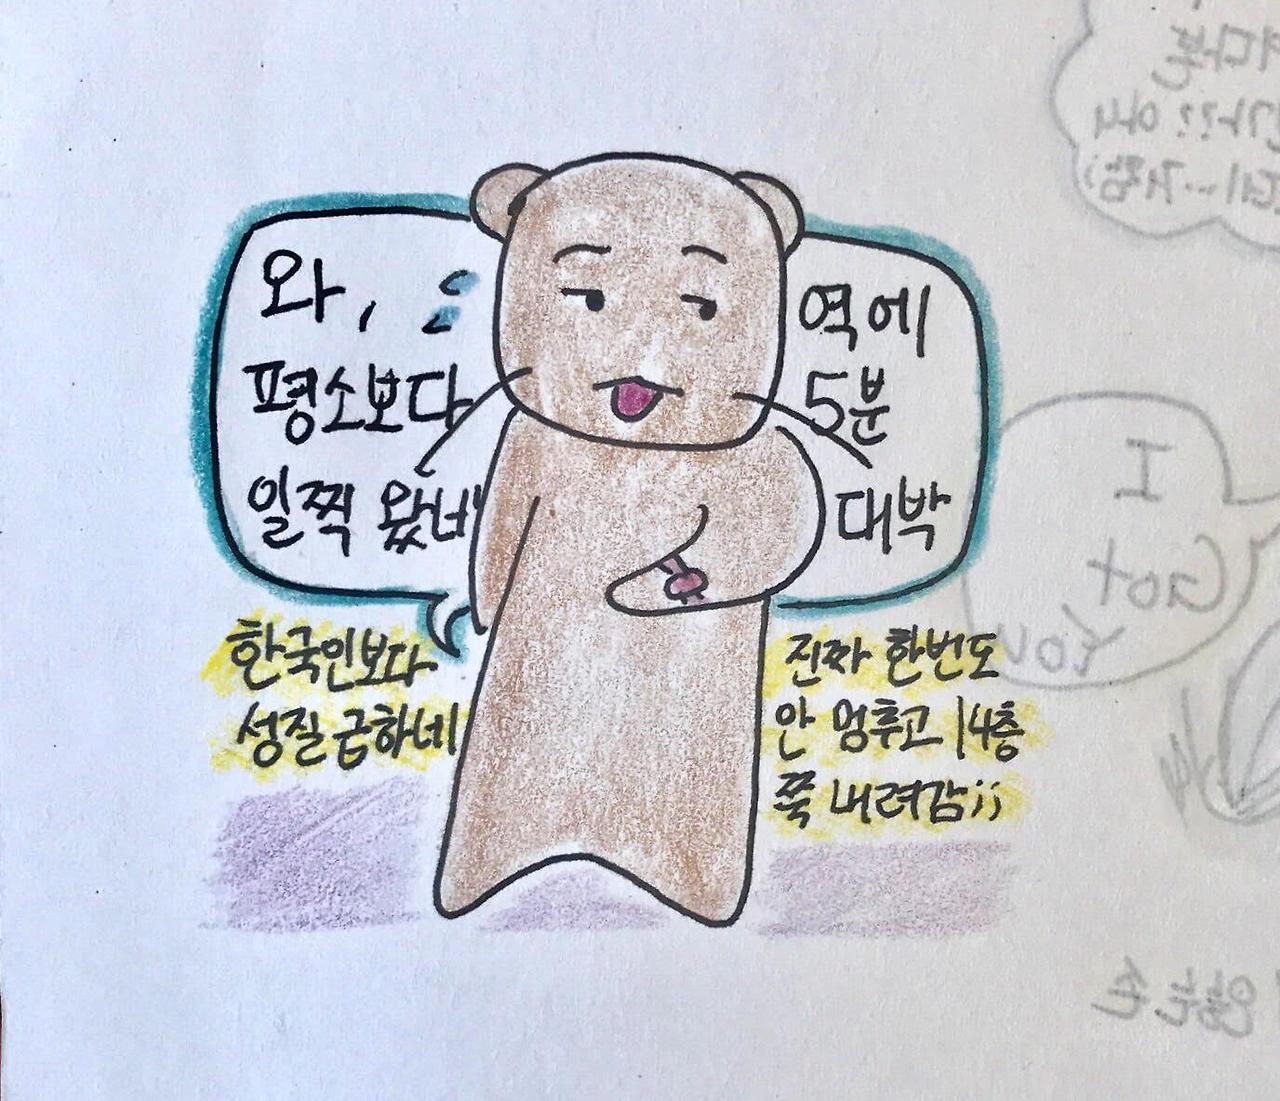 와,
평소보다
일찍 왔네
역에
5분
대박
한국인보다
성질 급하네
진짜 한번도
안 멈추고 14층
쭉 내려감;;
I
Got
You
않는 손